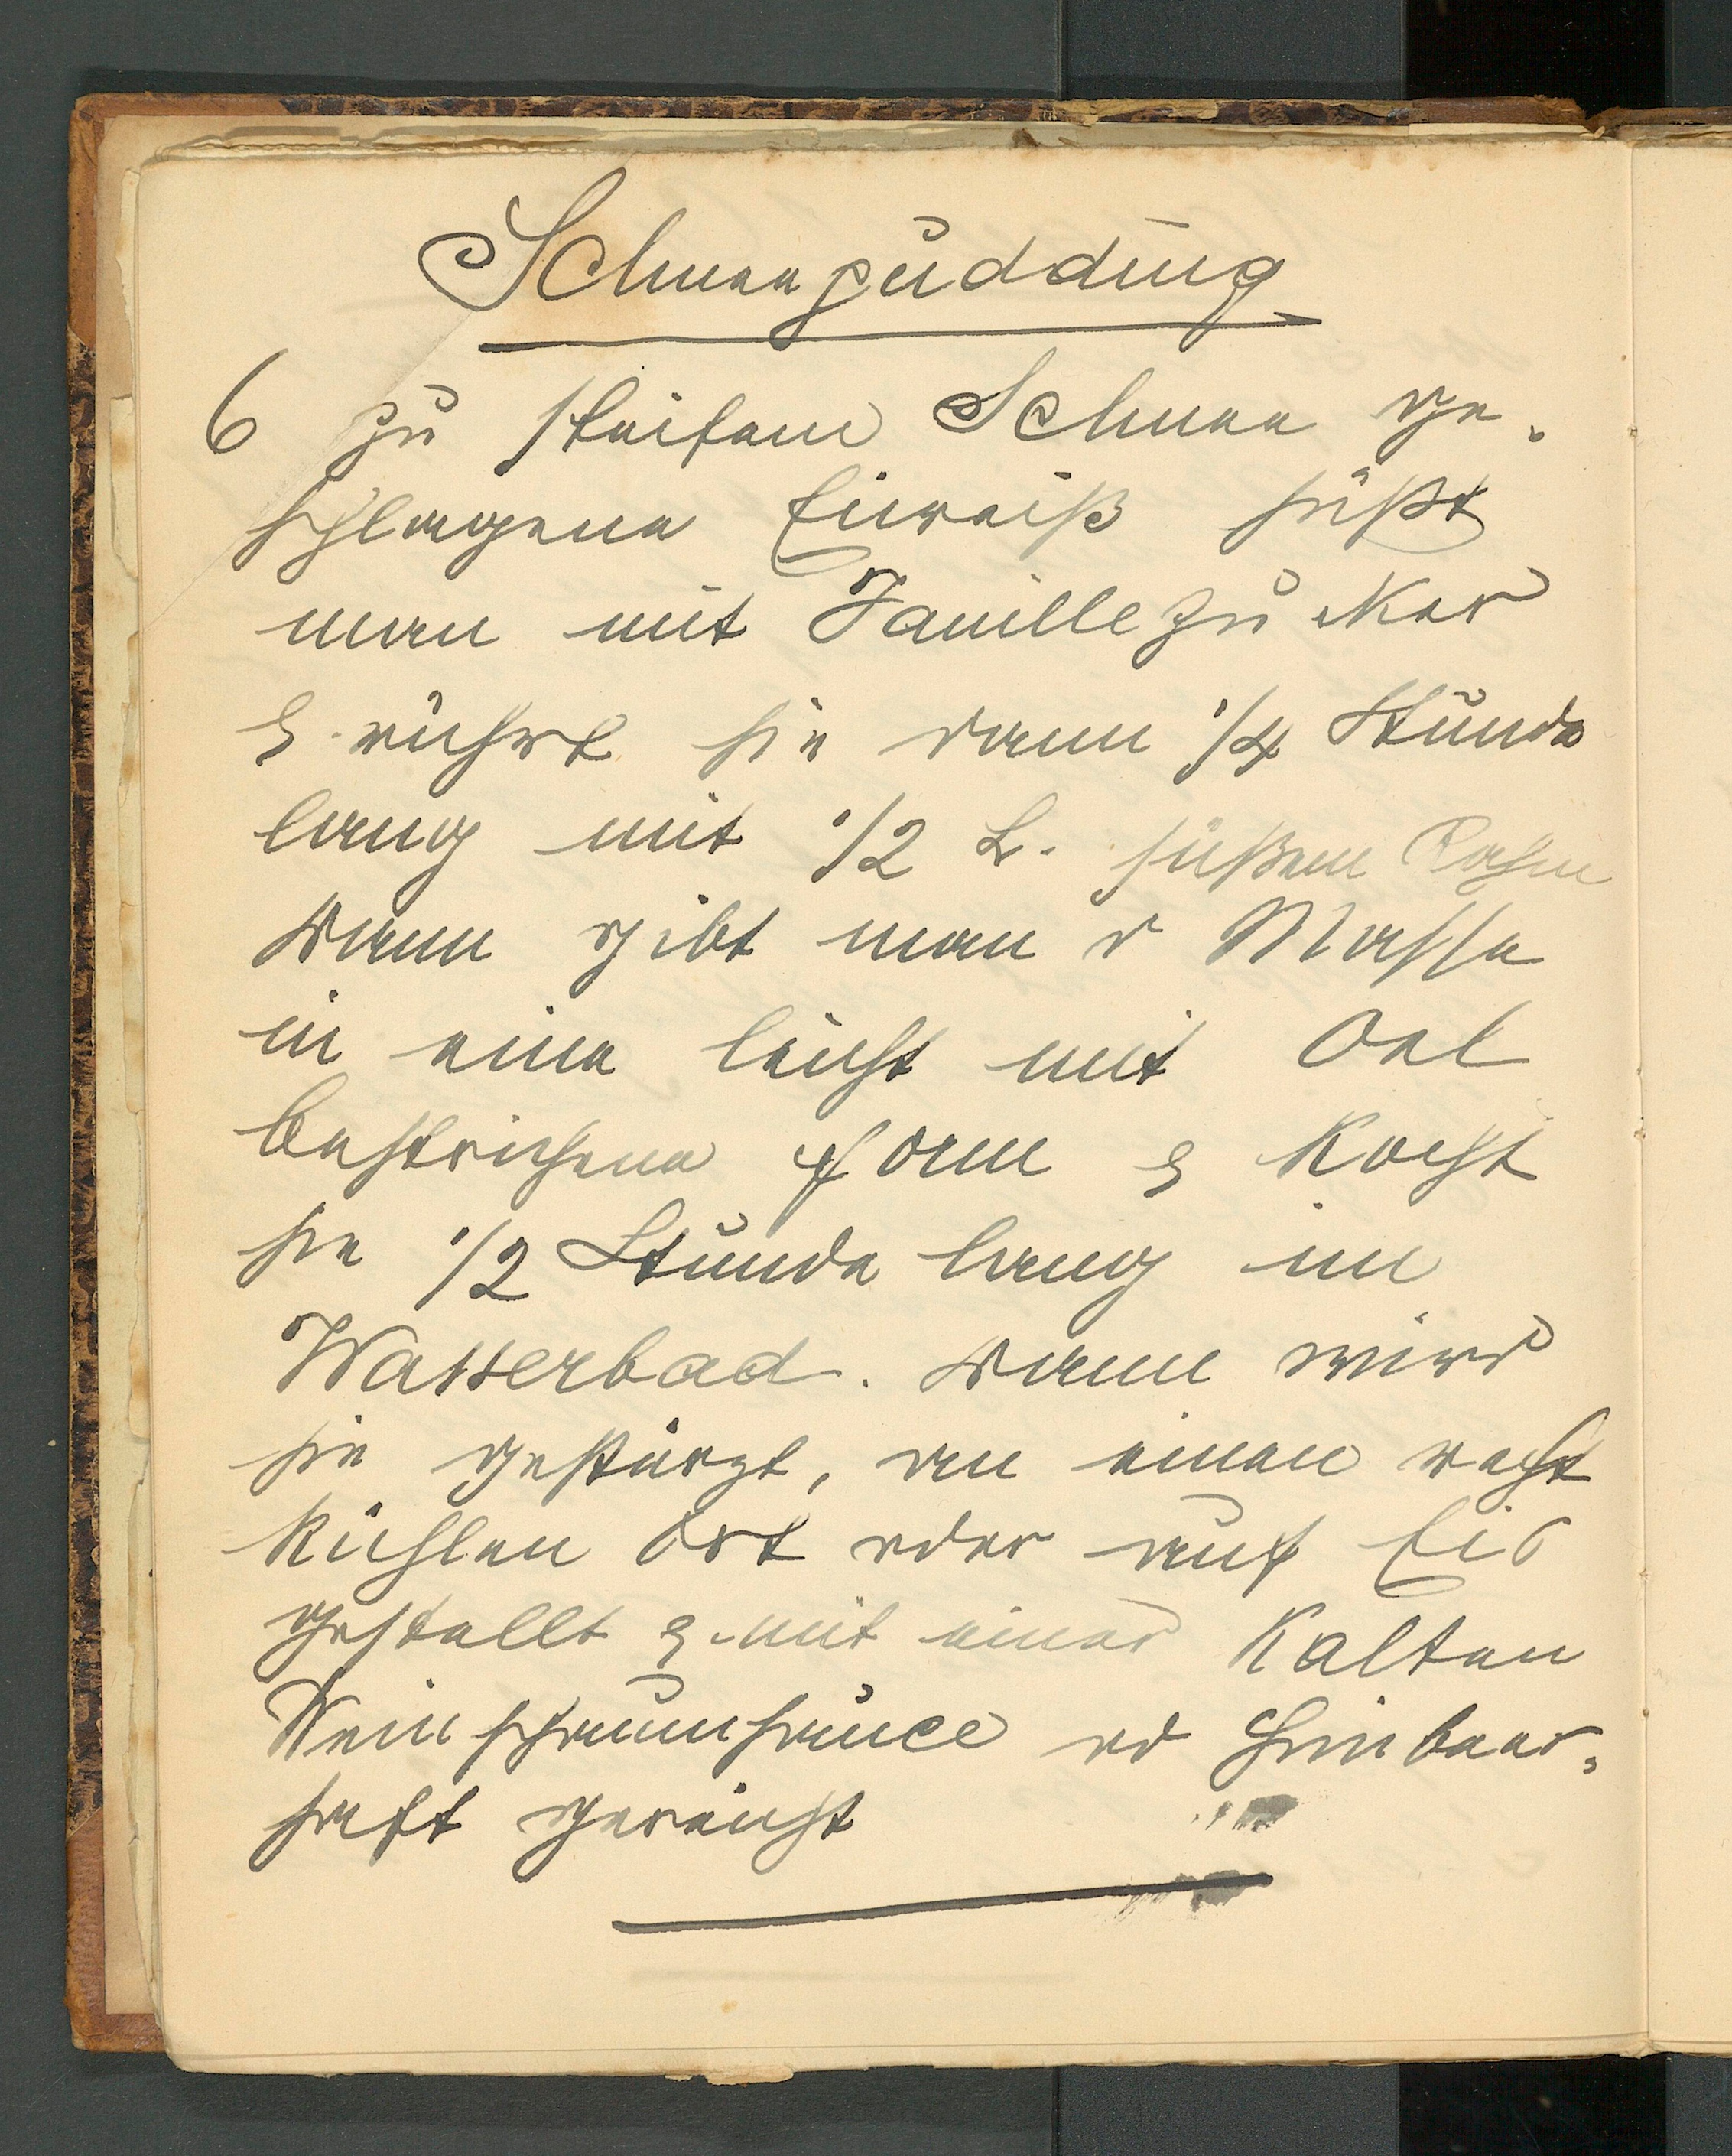 Schneepudding
6 zu steifem Schnee ge-
schlagene Eiweiß süßt
man mit Vanillezucker
& rührt sie dann 1/4 Stunde
lang mit 1/2 L. süßem Rahm
Dann gibt man d Masse
in eine leicht mit Oel
bestrichene Form & kocht
sie 1/2 Stunde lang im
Wasserbad. Dann wird
sie gestürzt, an einen recht
kühlen Ort oder auf Eis
gestellt & mit einer kalten
Weinschaumsauce od Himbeer-
saft gereicht